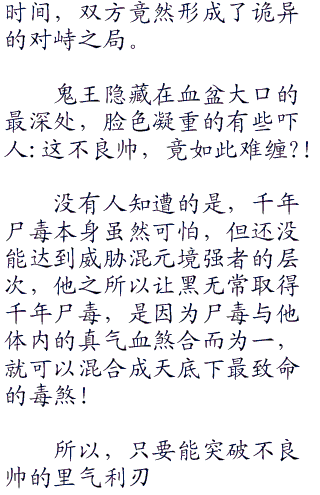 时间，双方竟然形成了诡异
的对峙之局。
鬼王隐藏在血盆大口的
最深处，脸色凝重的有些吓
人：这不良帅，竟如此难缠?!
没有人知遭的是，千年
尸毒本身虽然可怕，但还没
能达到威胁混元境强者的层
次，他之所以让黑无常取得
千年尸毒，是因为尸毒与他
体内的真气血煞合而为一，
就可以混合成天底下最致命
的毒煞！
所以，只要能突破不良
帅的里气利刃